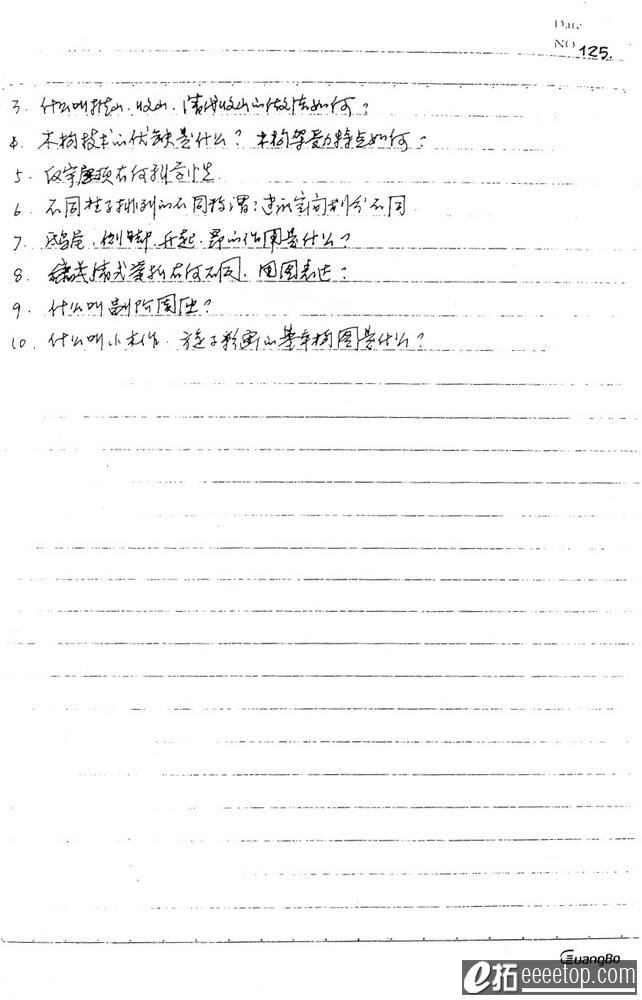 Date
NO 125.
3. 什么叫推山、收山、清代收山的做法如何？
4. 木构技术的优缺是什么？木构架受力特点如何？
5. 庑宇屋顶有何
6. 不同柱子排列的不同称谓：建议空间划分不同
7. 鸱尾、侧脚、升起、昂的作用是什么？
8. 清式举折有何不同，用图表达？
9. 什么叫副阶周匝？
10. 什么叫小木作、旋子彩画的基本构图是什么？
GuangBo
e拓 eeeetop.com